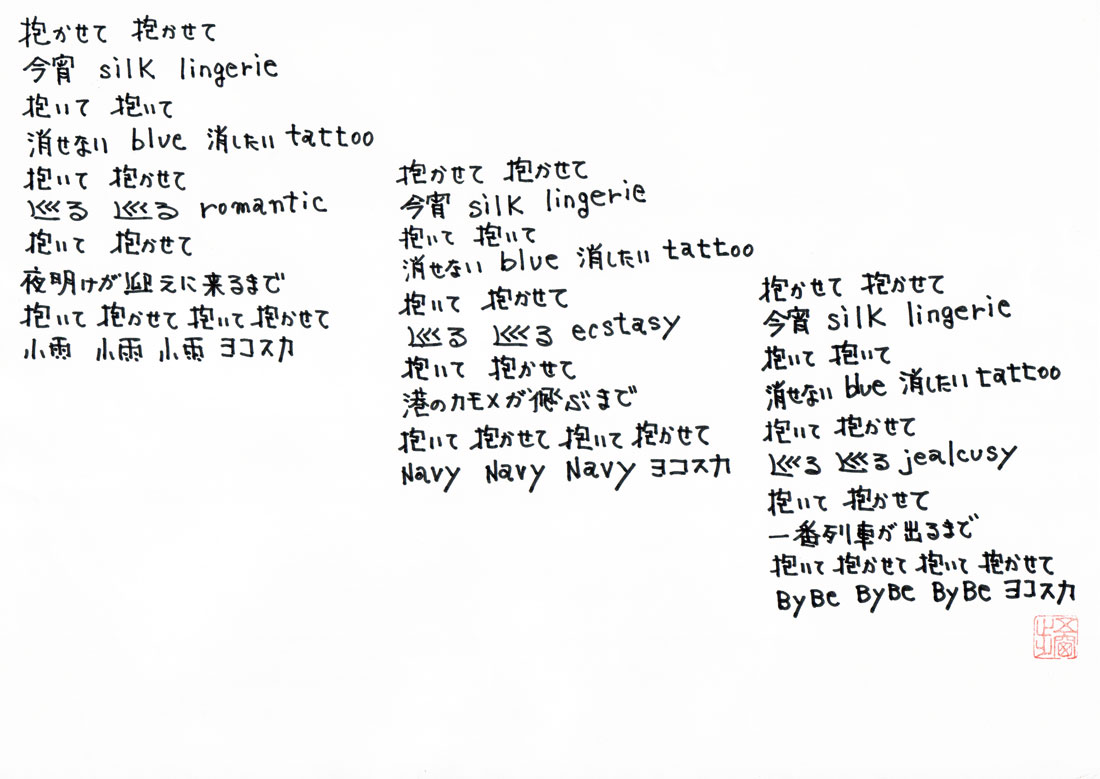 抱かせて 抱かせて
今宵 silk lingerie
抱いて 抱いて
消せない blue 消したい tattoo
抱いて 抱かせて
巡る 巡る romantic
抱いて 抱かせて
夜明けが迎えに来るまで
抱いて 抱かせて 抱いて 抱かせて
小雨 小雨 小雨 ヨコスカ
抱かせて 抱かせて
今宵 silk lingerie
抱いて 抱いて
消せない blue 消したい tattoo
抱いて 抱かせて
巡る 巡る ecstasy
抱いて 抱かせて
港のカモメが飛ぶまで
抱いて 抱かせて 抱いて 抱かせて
Navy Navy Navy ヨコスカ
抱かせて 抱かせて
今宵 silk lingerie
抱いて 抱いて
消せない blue 消したい tattoo
抱いて 抱かせて
巡る 巡る jealcusy
抱いて 抱かせて
一番列車が出るまで
抱いて 抱かせて 抱いて 抱かせて
ByBe ByBe ByBe ヨコスカ